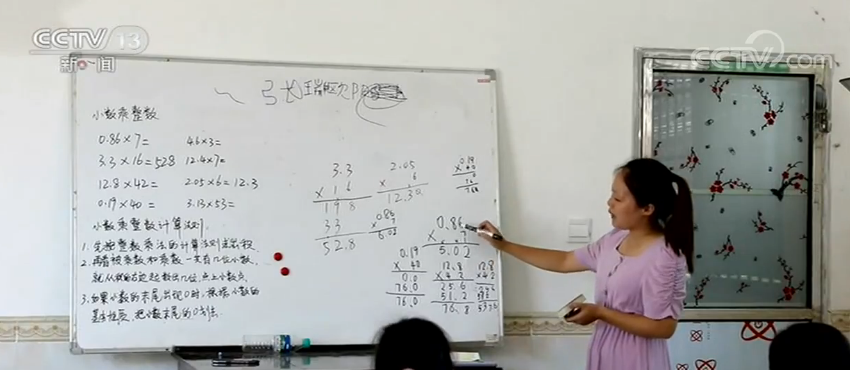 CCTV 13
新闻
CCTV.com
小数乘整数
0.86×7= 4.6×3=
3.3×16=528 12.4×7=
12.8×42= 2.05×6=12.3
0.19×40= 3.13×53=
小数乘整数计算法则
1. 先按整数乘法的计算法则
2. 再看被乘数和乘数一共有几位小数,
就从积的右边起数出几位,点上小数点。
3. 如果小数的末尾出现0时,根据小数的
基本性质,把小数末尾的0
3.3
×16
198
33
52.8
2.05
× 6
12.30
0.86
7
6.02
0.19
×40
0
76
760
0.86
×
5.02
0.19
× 40
0.0
76.0
76.0
12.8
×42
25.6
51.2
76.8
12.8
×40